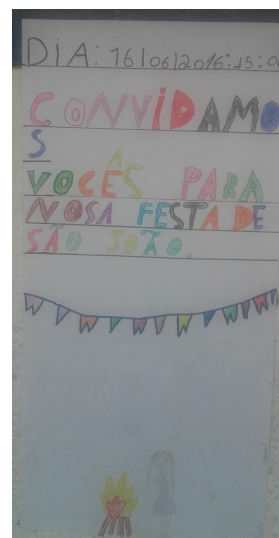 DIA: 16/06/2016:15:0
CONVIDAMO
S
VOCÊS PARA
NOSA FESTA DE
SÃO JOÃO.